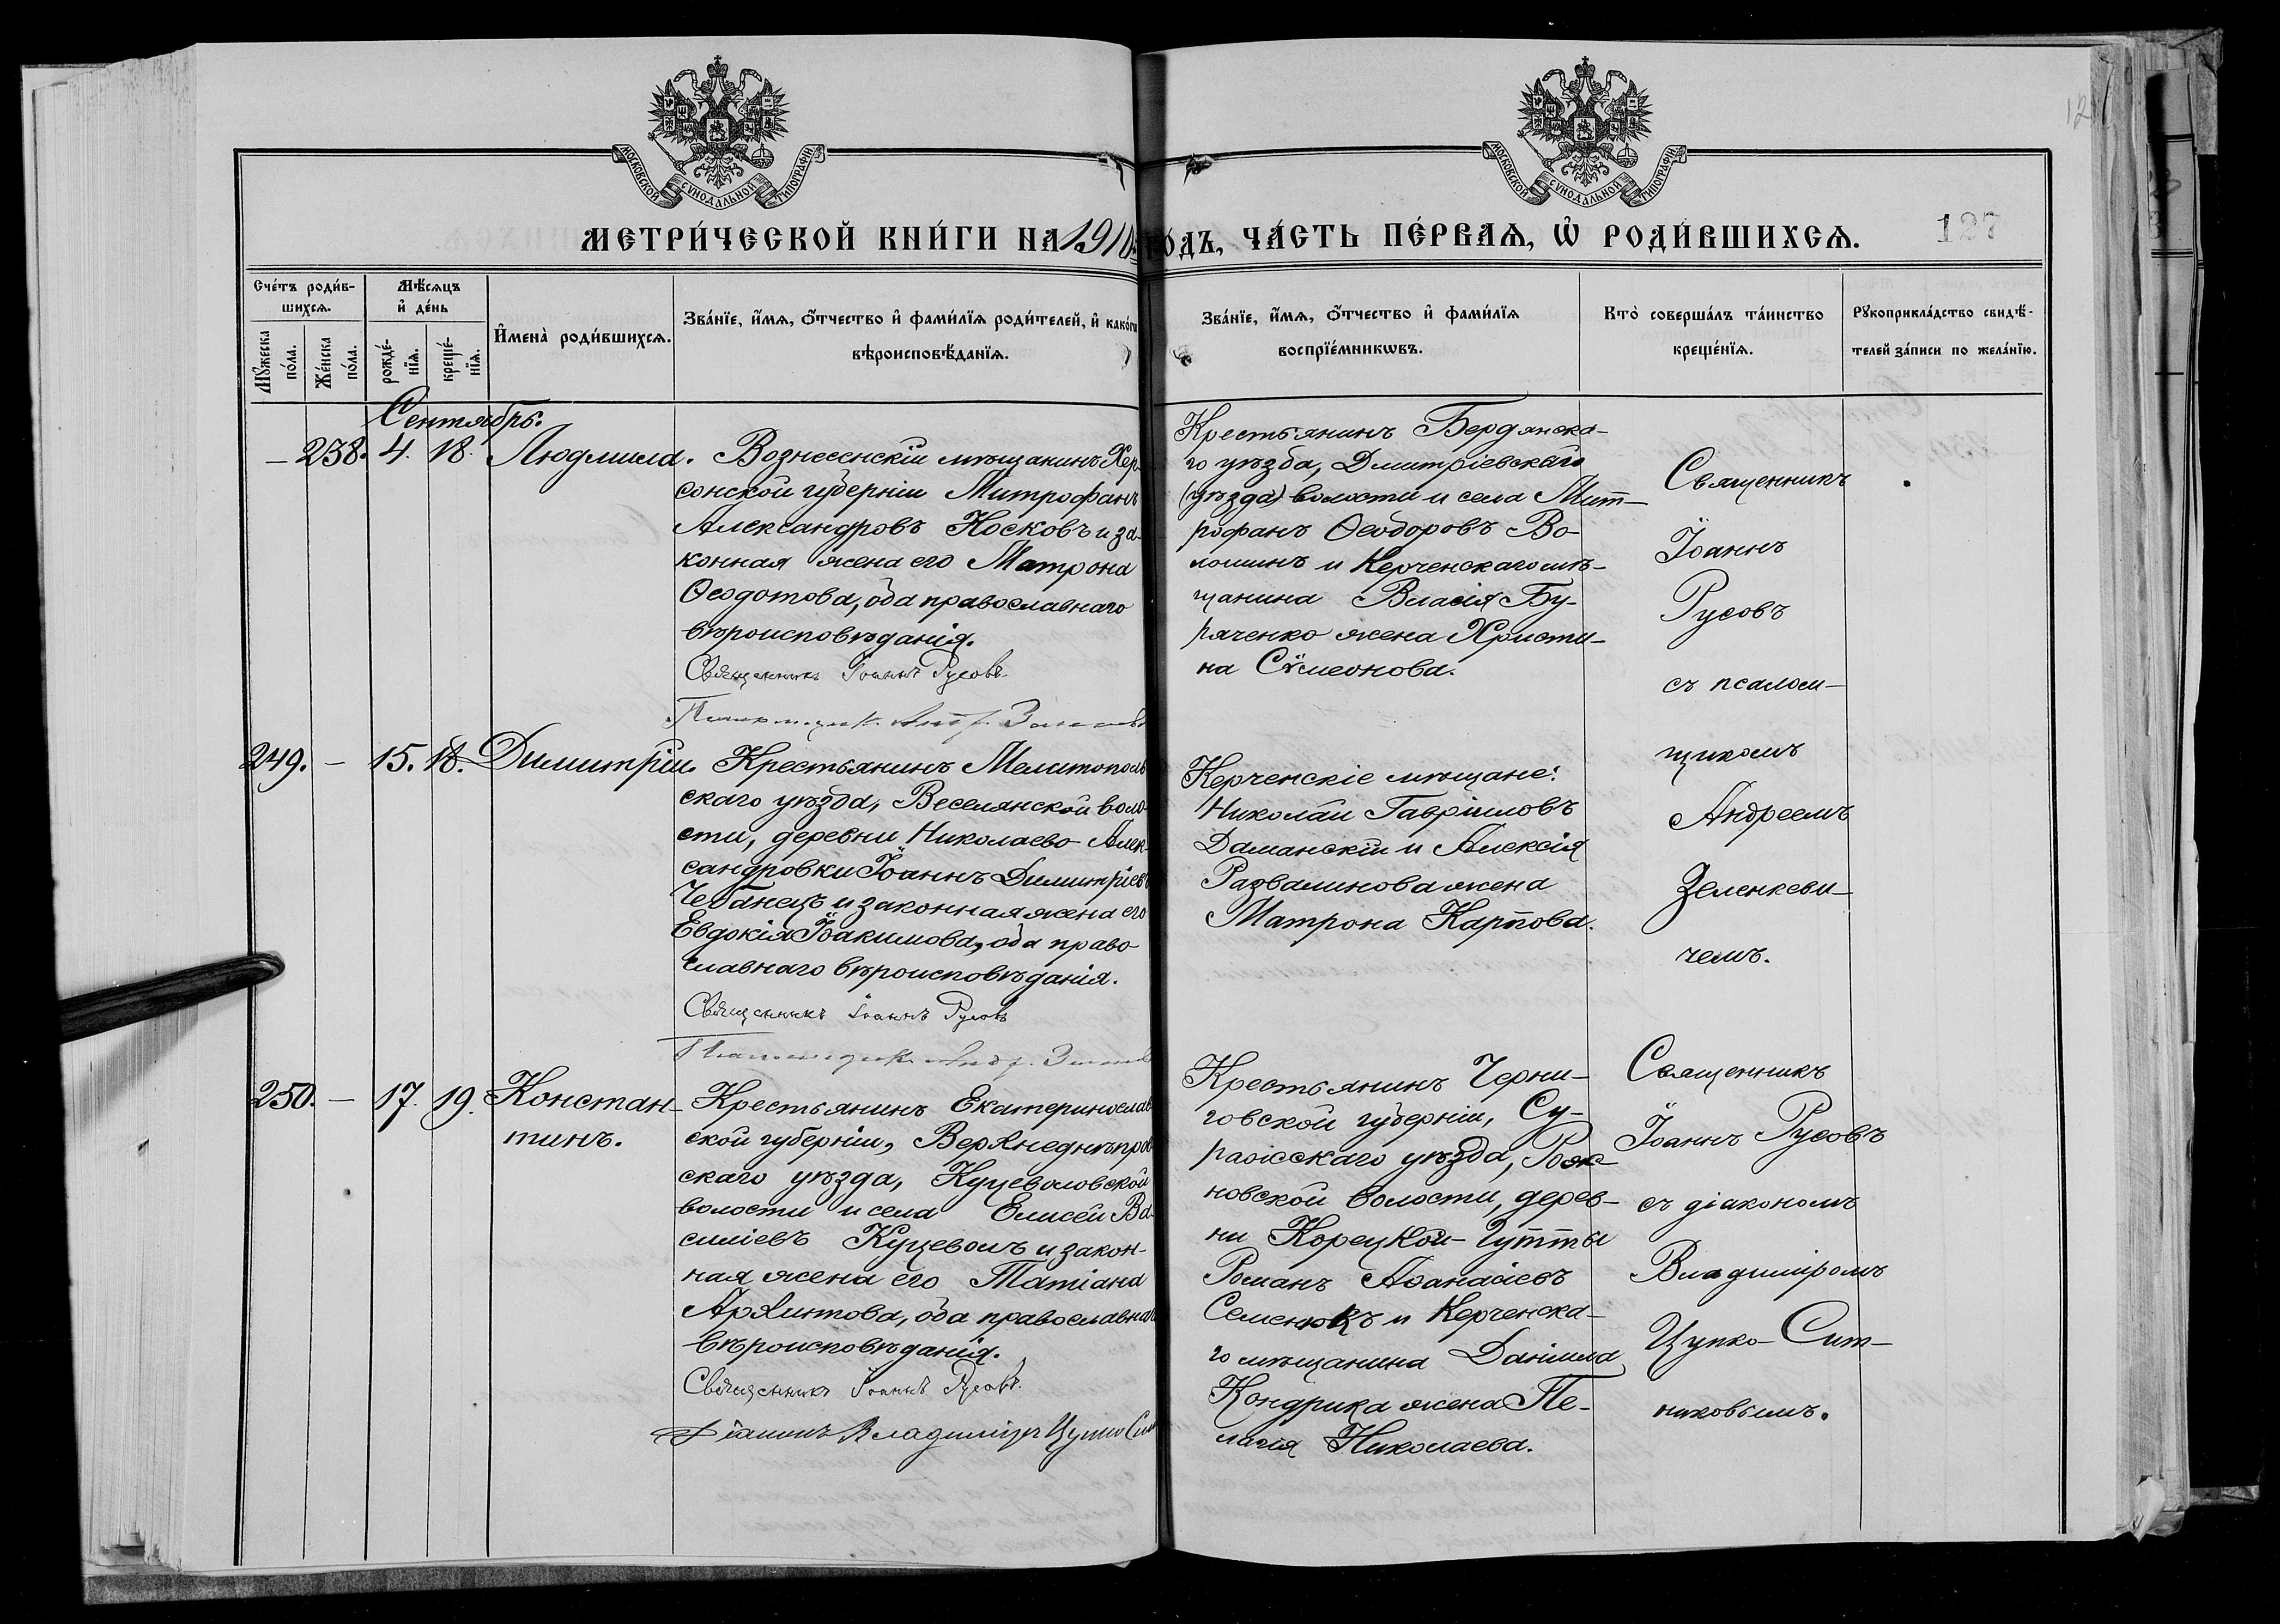 МОСКОВСКОЙ СѴНОДАЛЬНОЙ ТИПОГРАФІИ
МОСКОВСКОЙ СѴНОДАЛЬНОЙ ТИПОГРАФІИ
МЕТРИ́ЧЕСКОЙ КНИ́ГИ НА 1910 ГО́ДЪ, ЧА́СТЬ ПЕ́РВАѦ, Ѡ҆ РОДИ́ВШИХСѦ.
127
Сче́тъ роди́в-
шихсѧ.
Мꙋ́жеска
по́ла.
Же́нска
по́ла.
Мѣ́сѧцъ
и҆ де́нь
рожде́-
нїѧ.
креще́-
нїѧ.
И҆мена̀ роди́вшихсѧ.
Зва́нїе, и҆́мѧ, ѻ҆́тчество и҆ фами́лїѧ роди́телей, и҆ како́гѡ
вѣроисповѣ́данїѧ.
Зва́нїе, и҆́мѧ, ѻ҆́тчество и҆ фами́лїѧ
воспрїе́мникѡвъ.
Кто̀ соверша́лъ та́инство
креще́нїѧ.
Рꙋкоприкла́дство свидѣ́-
телей за́писи по жела́нїю.
Сентябрь.
– 238. 4. 18. Людмила.
Вознесенскій мѣщанинъ Хер-
сонской губерніи Митрофанъ
Александровъ Носковъ и за-
конная жена его Матрона
Ѳеодотова, оба православнаго
вѣроисповѣданія.
Священникъ Іоаннъ Русовъ
Псаломщик. Андр.
Крестьянинъ Бердянска-
го уѣзда, Дмитріевскаго
(уѣзда) волости и села Мит-
рофанъ Ѳеодоровъ Во-
лошинъ и Керченскаго мѣ-
щанина Власія Бу-
ряченко жена Христи-
на Сѵмеонова.
Священникъ
Іоаннъ
Русовъ
съ псалом-
щикомъ
Андреемъ
Зеленкеви-
чемъ.
249. – 15. 18. Димитрій.
Крестьянинъ Мелитополь
скаго уѣзда, Веселянской воло-
сти, деревни Николаево-Алек-
сандровки Іоаннъ Димитріевъ
Чебанецъ и законная жена его
Евдокія Іоакимова, оба право
славнаго вѣроисповѣданія.
Священникъ Іоаннъ Русовъ
Псаломщик Андр.
Керченскіе мѣщане:
Николай Гавріиловъ
Даманскій и Алексія
Развалинова жена
Матрона Карпова.
250. – 17. 19. Констан-
тинъ.
Крестьянинъ Екатеринослав
ской губерніи, Верхнеднѣпров
скаго уѣзда, Куцеволовской
волости и села Елисей Ва-
силіевъ Куцеволъ и закон-
ная жена его Татіана
Архиптова, оба православнаго
вѣроисповѣданія.
Священникъ Іоаннъ Русовъ.
Діаконъ Владиміръ Цупко Сит
Крестьянинъ Черни-
говской губерніи, Су-
ражскаго уѣзда, Рож-
новской волости, дерев-
ни Корецкой-Гутты
Романъ Аѳанасіевъ
Семенюкъ и Керченска-
го мѣщанина Даніила
Кондрика жена Пе-
лагія Николаева.
Священникъ
Іоаннъ Русовъ
съ діакономъ
Владиміромъ
Цупко-Сит-
никовымъ.